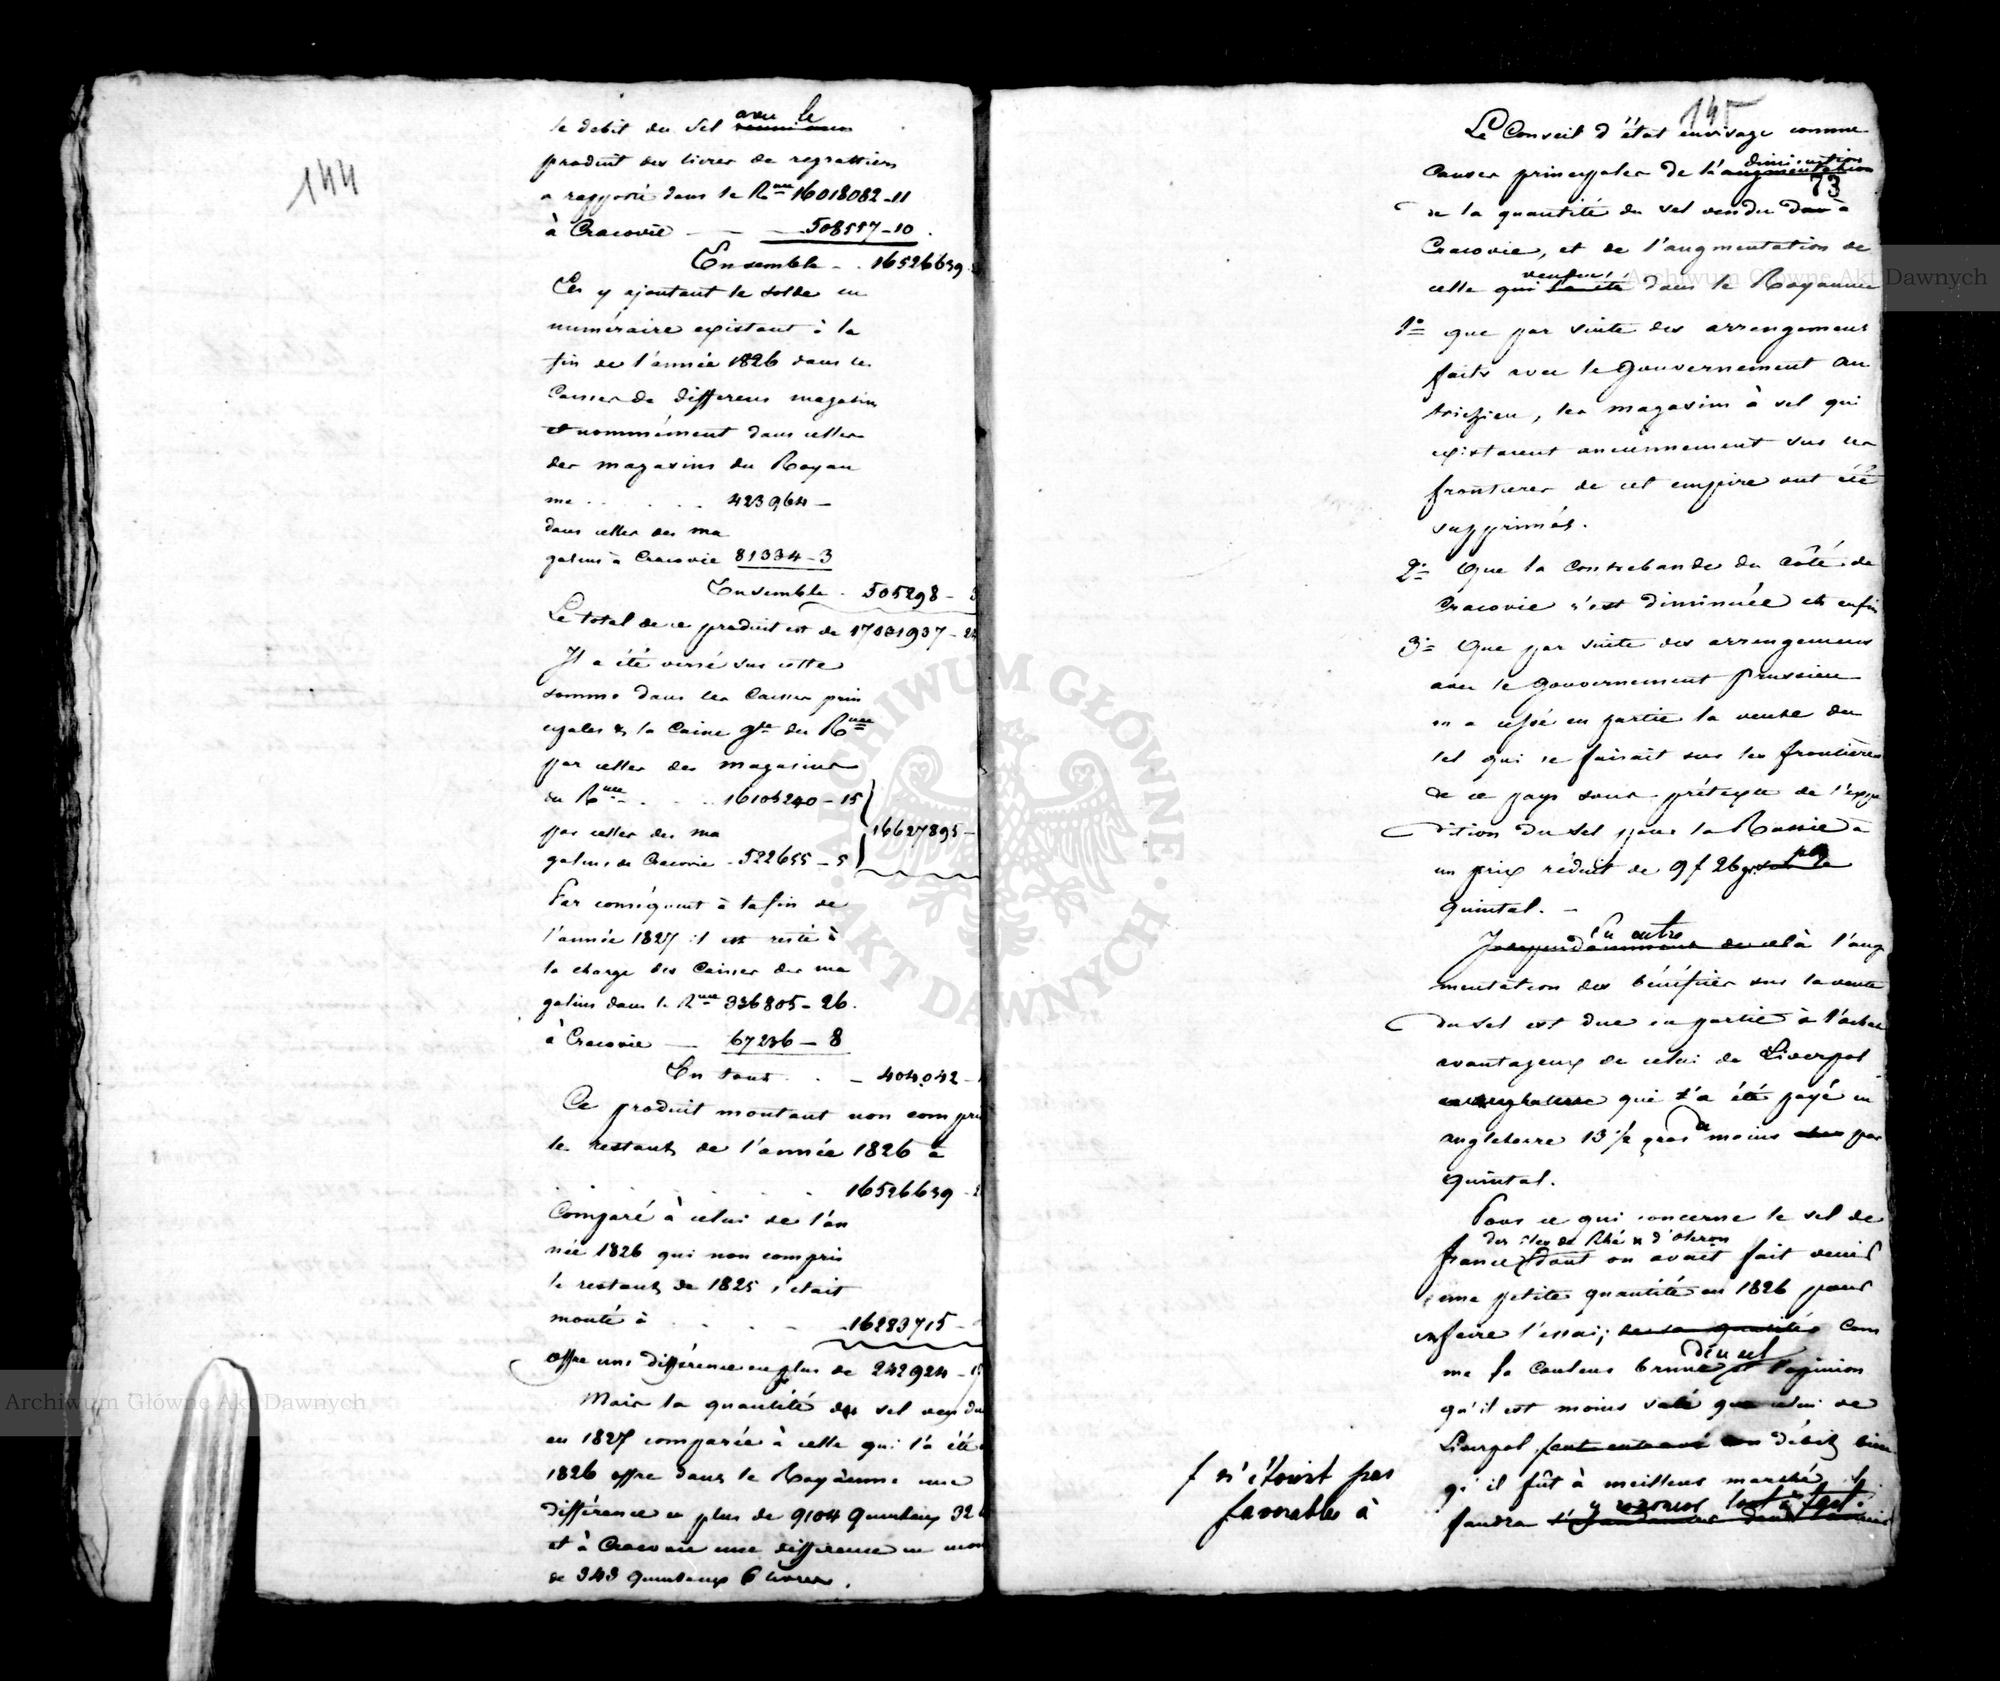 144
le debit du sel avec le
produit des livres de regrattiers
a rapporté dans le Rme 16018082-11
à Cracovie — 508557-10.
Ensemble - . 16526639
En y ajoutant le solde en
numéraire existant à la
fin de l'année 1826 dans les
Caisses de differens magasins
et nommément dans celles
des magasins du Royau
me . . . . 423964 -
dans celles des ma
gasins à Cracovie 81334-3
Ensemble . 505298 - 3
Le total de ce produit est de 17031937-24
Il a été versé sur cette
somme dans les Caisses prin
cipales & la Caisse gle du Rme
par celles des magasins
du Rme . . . 16105240-15
par celles des ma
16627895-
gasins de Cracovie - 522655-5
Par conséquent à la fin de
l'année 1827 il est resté à
la charge des Caisses des ma
gasins dans le Rme 336805-26.
à Cracovie — 67236-8
En tout . . - 404042-
Ce produit montant non compris
le restant de l'année 1826 à
. . . . . 16526639
Comparé à celui de l'an
née 1826 qui non compris
le restant de 1825 s'était
monté à . . . 16283715-
offre une différence en plus de 242924-
Mais la quantité de sel vendu
en 1827 comparée à celle qui l'a été
1826 offre dans le Royaume une
différence en plus de 9104 Quintaux 32
et à Cracovie une différence en moins
de 343 Quintaux 6 livres.
145
Le Conseil d'état envisage comme
diminution
Causes principales de l'augmentation
73
de la quantité du sel vendu à
Cracovie, et de l'augmentation de
vendue
celle qui l'a été dans le Royaume
1° que par suite des arrengemens
faits avec le Gouvernement Au
trichien, les magasins à sel qui
existaient anciennement sur les
frontieres de cet empire ont été
supprimés.
2° Que la Contrebande du côté de
Cracovie s'est diminuée et enfin
3° Que par suite des arrengemens
avec le gouvernement Prussien
on a cessé en partie la vente du
sel qui se faisait sur les frontières
de ce pays sous prétexte de l'expé
dition du sel pour la Russie à
un prix réduit de 9 f 26 gr. le
quintal. -
En outre
Indépendamment de celà l'aug
mentation des bénéfices sur la vente
du sel est due en partie à l'achat
avantageux de celui de Liverpol
en angleterre qui s'a été payé en
angleterre 13 1/2 gros de moins par
quintal.
Pour ce qui concerne le sel de
des iles de Rhé & d'Oleron
france dont on avait fait venir
une petite quantité en 1826 pour
en faire l'essai; de sa quantité Com
me sa Couleur brune et l'opinion
qu'il est moins salé que celui de
Liverpol font entrave au débit bien
qu'il fût à meilleur marché
y renoncer tout à fait.
faudra
f n'étoient pas
favorables à
Archiwum Główne Akt Dawnych
Archiwum Główne Akt Dawnych
ARCHIWUM GŁÓWNE AKT DAWNYCH